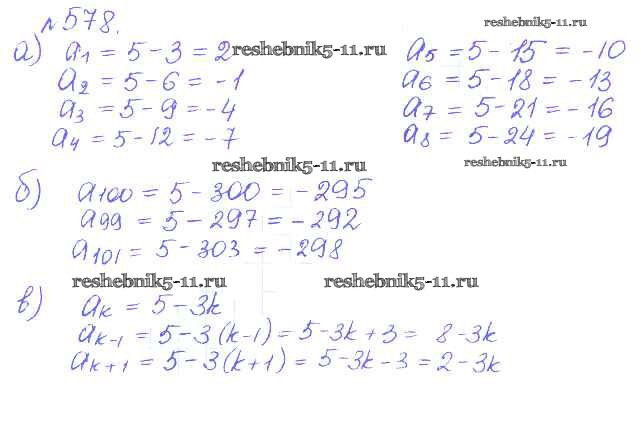 №578.
reshebnik5-11.ru
а) a₁ = 5 - 3 = 2
reshebnik5-11.ru
a₂ = 5 - 6 = -1
a₃ = 5 - 9 = -4
a₄ = 5 - 12 = -7
a₅ = 5 - 15 = -10
a₆ = 5 - 18 = -13
a₇ = 5 - 21 = -16
a₈ = 5 - 24 = -19
reshebnik5-11.ru
reshebnik5-11.ru
б) a₁₀₀ = 5 - 300 = -295
a₉₉ = 5 - 297 = -292
a₁₀₁ = 5 - 303 = -298
reshebnik5-11.ru
reshebnik5-11.ru
в) aₖ = 5 - 3k
aₖ₋₁ = 5 - 3(k-1) = 5 - 3k + 3 = 8 - 3k
aₖ₊₁ = 5 - 3(k+1) = 5 - 3k - 3 = 2 - 3k